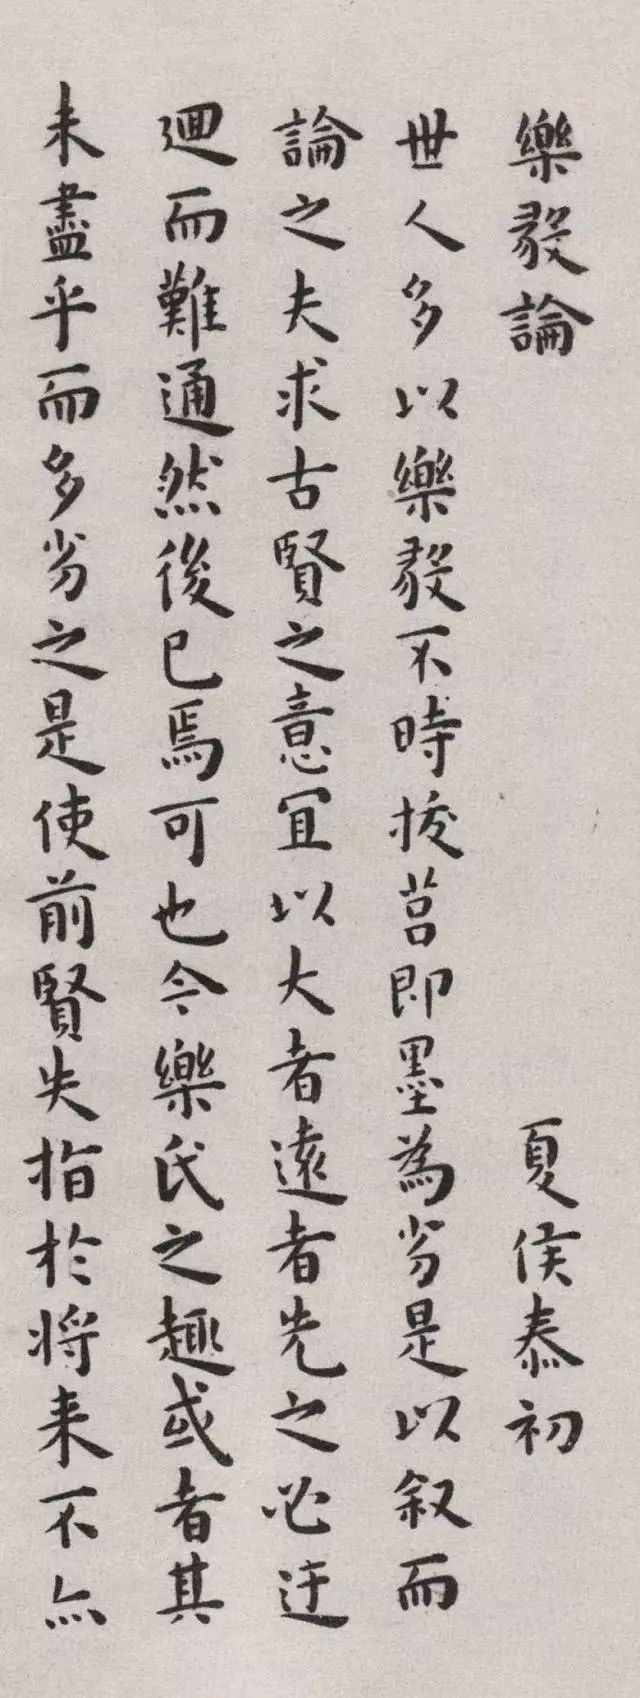 樂毅論 夏侯泰初
世人多以樂毅不時拔莒即墨為劣是以叙而
論之夫求古賢之意宜以大者遠者先之必迂
迴而難通然後已焉可也今樂氏之趣或者其
未盡乎而多劣之是使前賢失指於將来不亦